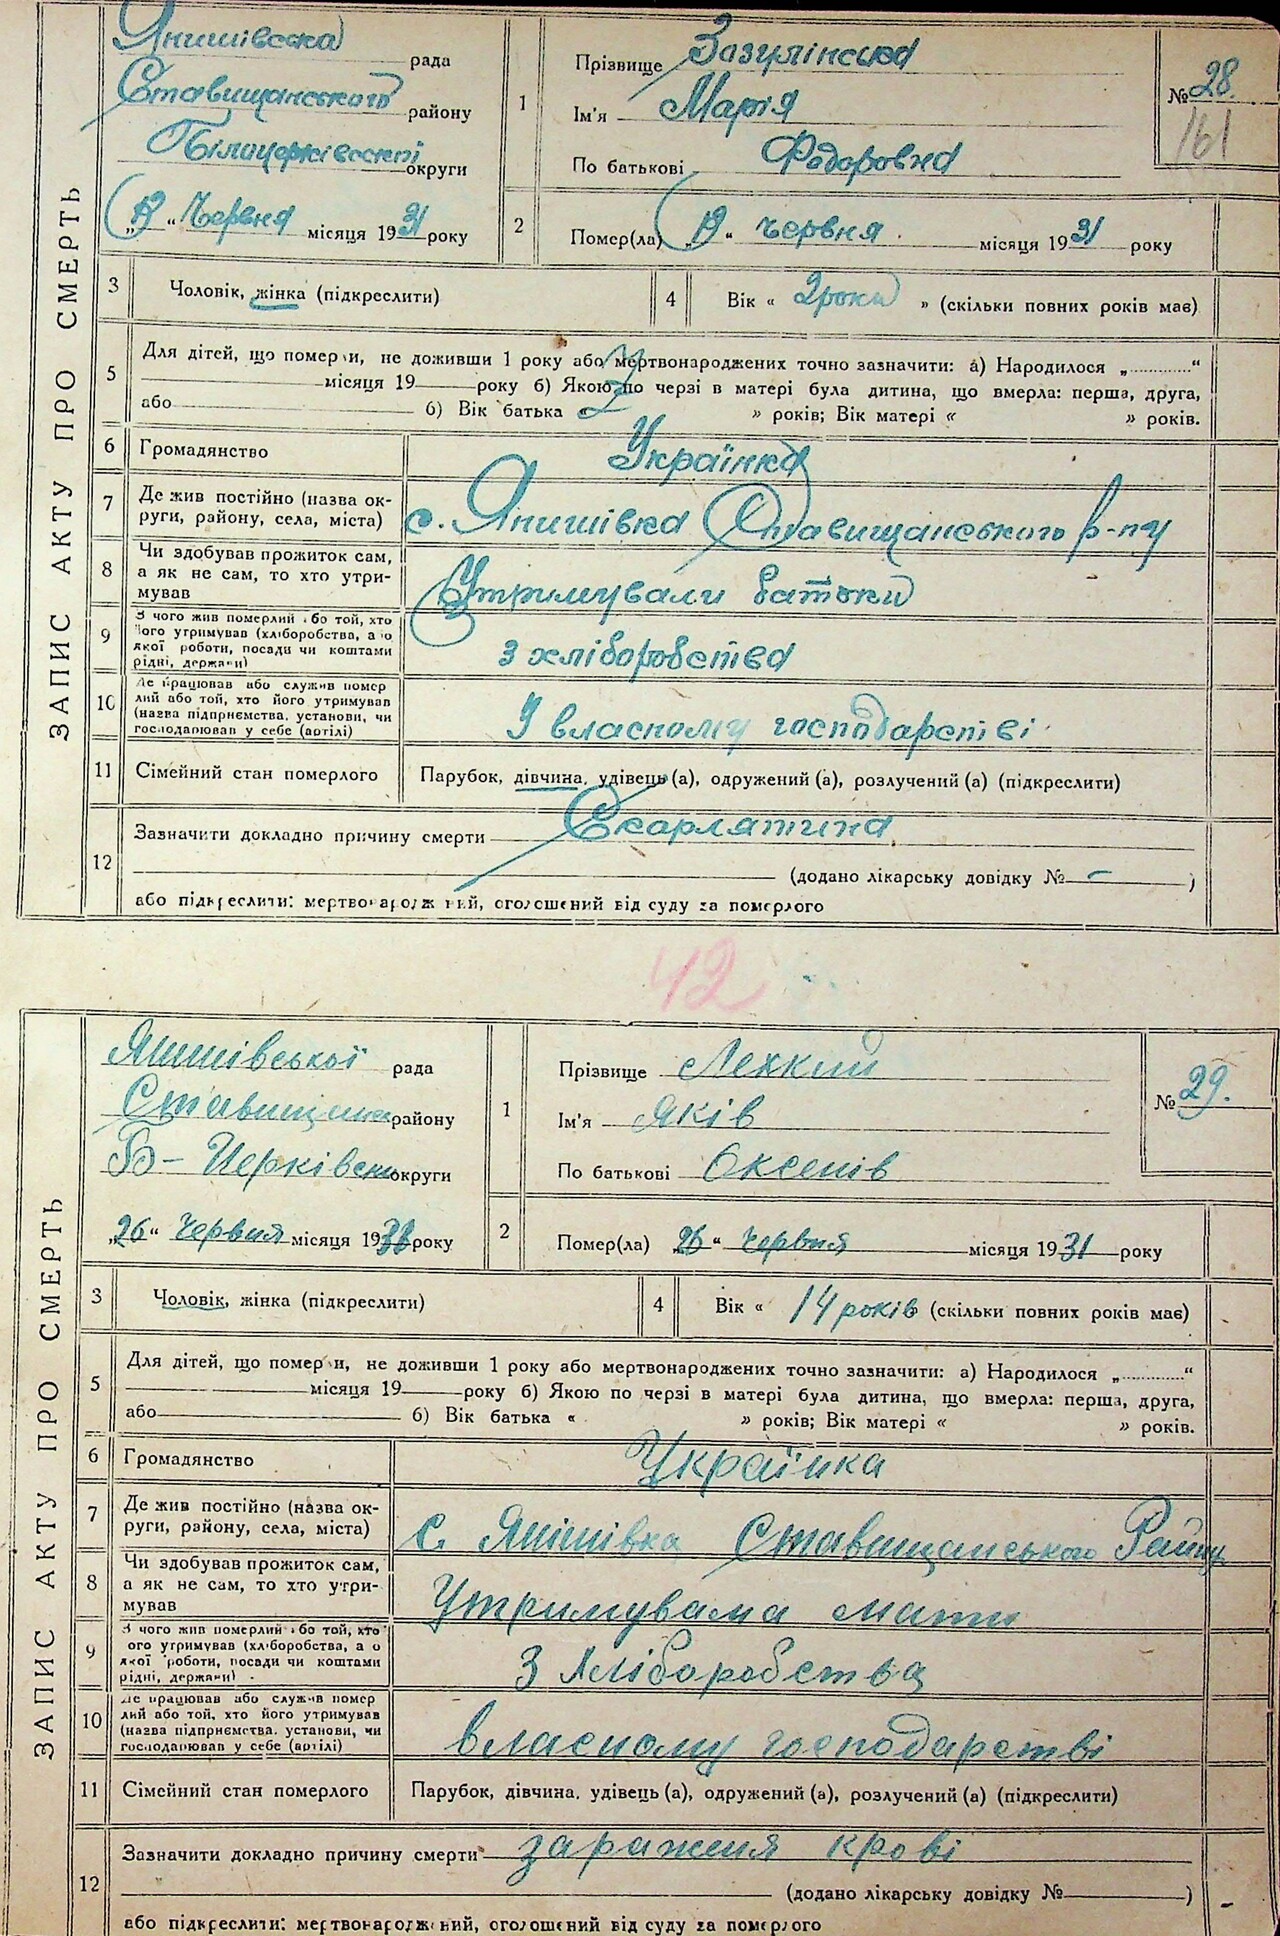 ЗАПИС АКТУ ПРО СМЕРТЬ
Янишівська рада
Ставищанського району
Білоцерківської округи
„19“ Червня місяця 1931 року
1
Прізвище Зазулінська
Ім'я Марія
По батькові Федоровна
№ 28.
161
2
Помер(ла) „19“ червня місяця 1931 року
3 Чоловік, жінка (підкреслити)
4 Вік « 2 роки » (скільки повних років має)
5
Для дітей, що померли, не доживши 1 року або мертвонароджених точно зазначити: а) Народилося „............“
місяця 19 року б) Якою по черзі в матері була дитина, що вмерла: перша, друга,
або б) Вік батька « » років; Вік матері « » років.
6 Громадянство Українка
7
Де жив постійно (назва ок-
руги, району, села, міста) с. Янишівка Ставищанського р-ну
8
Чи здобував прожиток сам,
а як не сам, то хто утри-
мував Утримували батьки
9
З чого жив померлий або той, хто
його утримував (хліборобства, а о
якої роботи, посади чи коштами
рідні, держави) з хліборобства
10
Де працював або служив помер
лий або той, хто його утримував
(назва підприємства, установи, чи
господарював у себе (артілі) У власному господарстві
11 Сімейний стан померлого Парубок, дівчина, удівець (а), одружений (а), розлучений (а) (підкреслити)
12
Зазначити докладно причину смерти Скарлятина
(додано лікарську довідку № – )
або підкреслити: мертвонароджений, оголошений від суду за померлого
42
ЗАПИС АКТУ ПРО СМЕРТЬ
Янишівської рада
Ставищанс району
Б-Церківськ округи
„26“ Червня місяця 1931 року
1
Прізвище Лехкий
Ім'я Яків
По батькові Оксенів
№ 29.
2
Помер(ла) „26“ Червня місяця 1931 року
3 Чоловік, жінка (підкреслити)
4 Вік « 14 років (скільки повних років має)
5
Для дітей, що померли, не доживши 1 року або мертвонароджених точно зазначити: а) Народилося „............“
місяця 19 року б) Якою по черзі в матері була дитина, що вмерла: перша, друга,
або б) Вік батька « » років; Вік матері « » років.
6 Громадянство Українка
7
Де жив постійно (назва ок-
руги, району, села, міста) с. Янішівка Ставищанського Району
8
Чи здобував прожиток сам,
а як не сам, то хто утри-
мував Утримувала мати
9
З чого жив померлий або той, хто
ого утримував (хліборобства, а о
якої роботи, посади чи коштами
рідні, держави) З хліборобства
10
Де працював або служив помер
лий або той, хто його утримував
(назва підприємства, установи, чи
господарював у себе (артілі) власному господарстві
11 Сімейний стан померлого Парубок, дівчина, удівець (а), одружений (а), розлучений (а) (підкреслити)
12
Зазначити докладно причину смерти зараженя крові
(додано лікарську довідку № )
або підкреслити: мертвонароджений, оголошений від суду за померлого